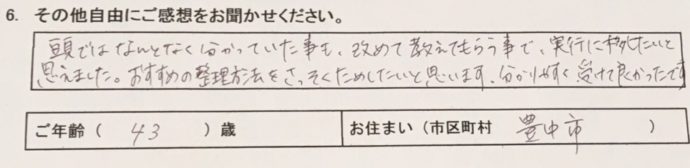 6. その他自由にご感想をお聞かせください。
頭ではなんとなく分かっていた事も、改めて教えてもらう事で、実行に移したいと
思えました。おすすめの整理方法をさっそくためしたいと思います。分かりやすく受けて良かったです
ご年齢（ 43 ）歳 お住まい（市区町村 豊中市 ）